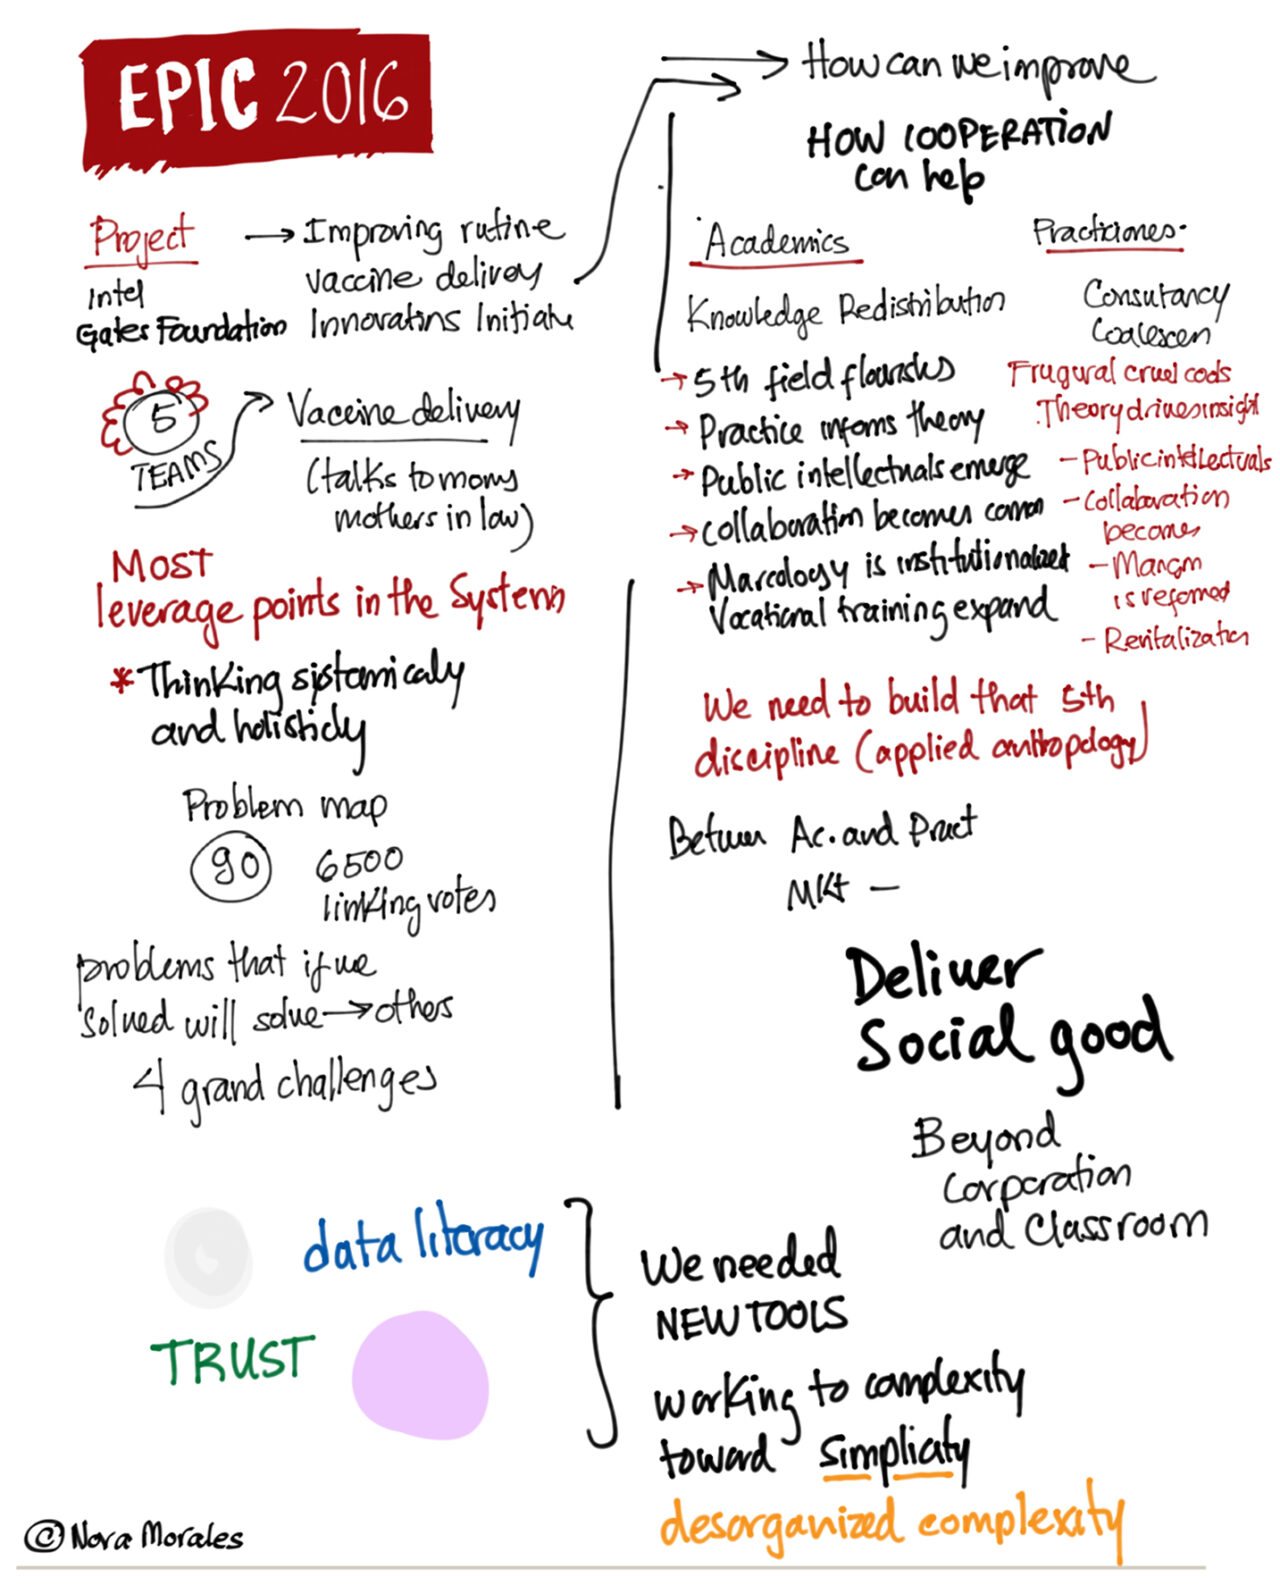 EPIC 2016
Project
Intel
Gates Foundation
→ Improving rutine
vaccine delivey
Innovatins Initiate
5
TEAMS
Vaccine delivery
(talks to moms
mothers in law)
MOST
leverage points in the System
* Thinking sistamicaly
and holisticly
Problem map
90
6500
linking votes
problems that if we
solved will solve → others
4 grand challenges
How can we improve
HOW COOPERATION
can help
Academics
Knowledge Redistribution
→ 5th field flourishes
→ Practice informs theory
→ Public intellectuals emerge
→ collaboration becomes common
→ Marcology is institutionalized
Vocational training expand
Practiciones
Consutancy
Coalescen
Frugural cruel cods
Theory drives insight
- Public intellectuals
- Collaboration
becomes
-
is reformed
- Revitalization
We need to build that 5th
discipline (applied anthropology)
Between Ac. and Pract
MKt —
Deliver
Social good
Beyond
Corporation
and Classroom
data literacy
TRUST
We needed
NEW TOOLS
working to complexity
toward simplicity
desorganized complexity
© Nora Morales